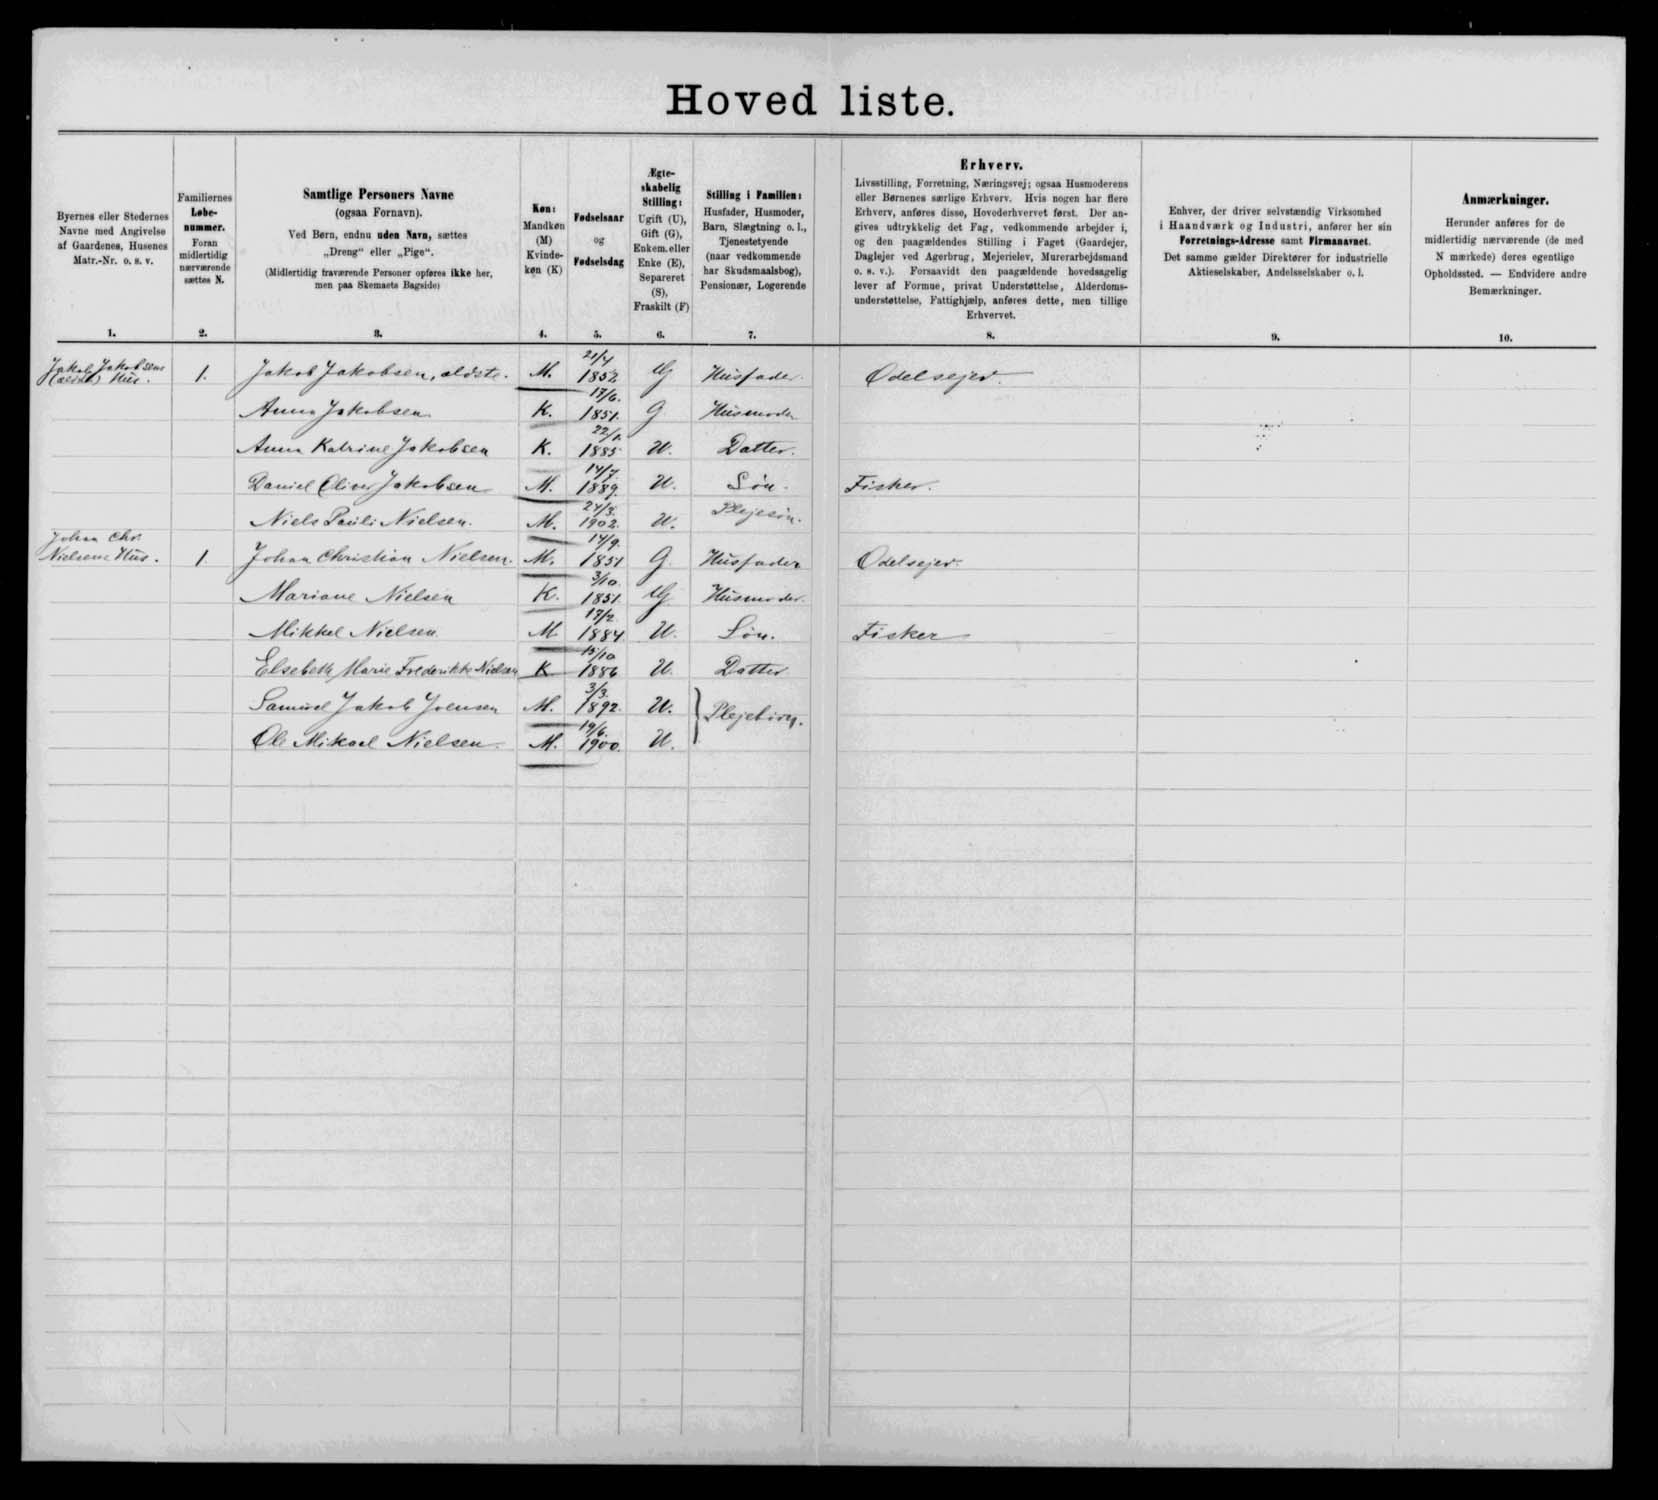 Hoved liste.
Byernes eller Stedernes
Navne med Angivelse
af Gaardenes, Husenes
Matr.-Nr. o. s. v.
1.
Familiernes
Løbe-
nummer.
Foran
midlertidig
nærværende
sættes N.
2.
Samtlige Personers Navne
(ogsaa Fornavn).
Ved Børn, endnu uden Navn, sættes
„Dreng“ eller „Pige“.
(Midlertidig fraværende Personer opføres ikke her,
men paa Skemaets Bagside)
3.
Køn:
Mandkøn
(M)
Kvinde-
køn (K)
4.
Fødselsaar
og
Fødselsdag
5.
Ægte-
skabelig
Stilling:
Ugift (U),
Gift (G),
Enkem. eller
Enke (E),
Separeret
(S),
Fraskilt (F)
6.
Stilling i Familien:
Husfader, Husmoder,
Barn, Slægtning o. l.,
Tjenestetyende
(naar vedkommende
har Skudsmaalsbog),
Pensionær, Logerende
7.
Erhverv.
Livsstilling, Forretning, Næringsvej; ogsaa Husmoderens
eller Børnenes særlige Erhverv. Hvis nogen har flere
Erhverv, anføres disse, Hovederhvervet først. Der an-
gives udtrykkelig det Fag, vedkommende arbejder i,
og den paagældendes Stilling i Faget (Gaardejer,
Daglejer ved Agerbrug, Mejerielev, Murerarbejdsmand
o. s. v.). Forsaavidt den paagældende hovedsagelig
lever af Formue, privat Understøttelse, Alderdoms-
understøttelse, Fattighjælp, anføres dette, men tillige
Erhvervet.
8.
Enhver, der driver selvstændig Virksomhed
i Haandværk og Industri, anfører her sin
Forretnings-Adresse samt Firmanavnet.
Det samme gælder Direktører for industrielle
Aktieselskaber, Andelsselskaber o. l.
9.
Anmærkninger.
Herunder anføres for de
midlertidig nærværende (de med
N mærkede) deres egentlige
Opholdssted. — Endvidere andre
Bemærkninger.
10.
Jakob Jakobsens
(ældst) Hus. 1. Jakob Jakobsen, ældste. M. 21/4 1852 G Husfader. Odelsejer.
Anna Jakobsen K. 17/6. 1851. G Husmoder
Anna Katrine Jakobsen K. 22/1. 1885 U. Datter.
Daniel Oliver Jakobsen M. 14/7. 1889. U. Søn. Fisker.
Niels Pauli Nielsen. M. 24/3. 1902. U. Plejesøn.
Johan Chr.
Nielsens Hus. 1. Johan Christian Nielsen. M. 14/9. 1851 G. Husfader Odelsejer.
Mariane Nielsen K. 3/10. 1851. G Husmoder.
Mikkel Nielsen M 17/2. 1884 U. Søn. Fisker
Elsebeth Marie Frederikke Nielsen K 15/10 1886 U. Datter
Samuel Jakob Joensen M. 3/3. 1892. U. Plejebørn.
Ole Mikael Nielsen. M. 19/6. 1900. U.